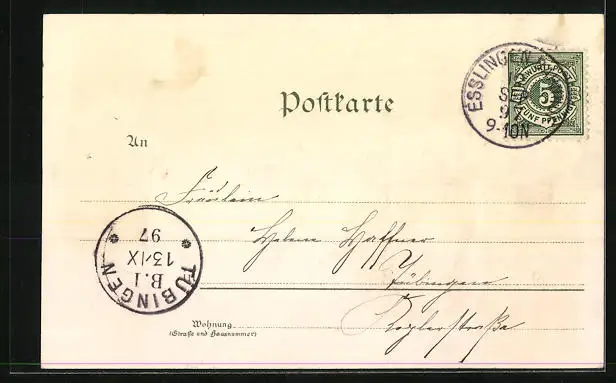 Postkarte
ESSLINGEN
9-10N
WÜRTTEMBERG
5
FÜNF PFENNIG
An
Fräulein
Helene Haffner
Tübingen
TÜBINGEN
B.I
13/IX
97
Wohnung
(Straße und Hausnummer)